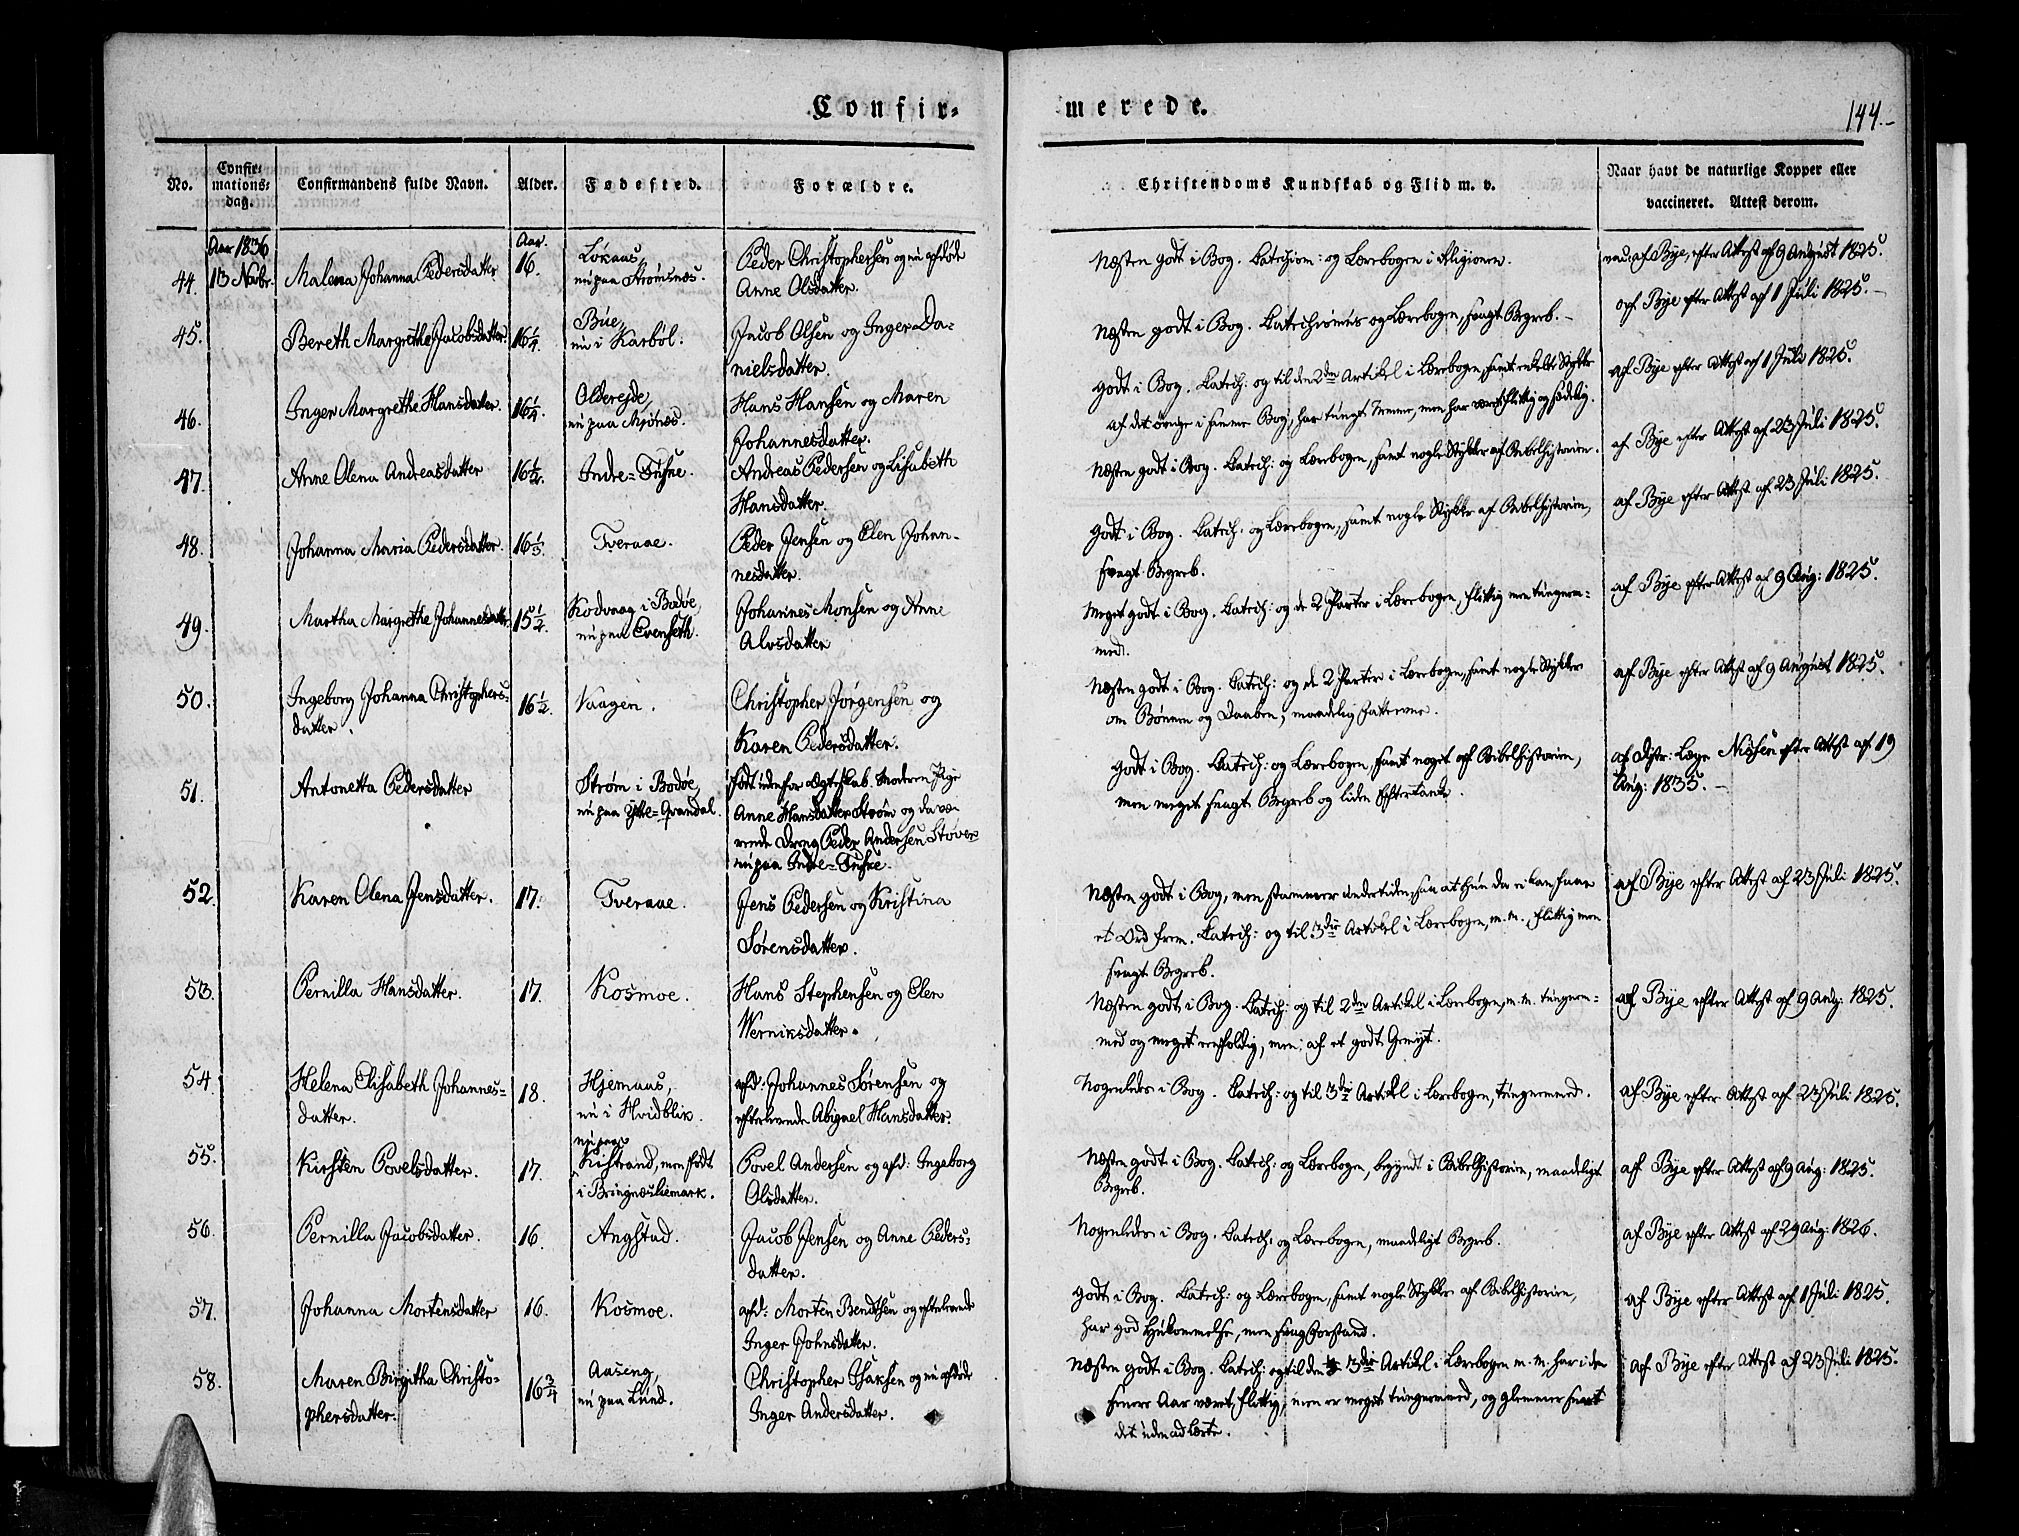 Confir-
merede.
144.-
No.
Confir-
mations-
dag.
Confirmandens fulde Navn.
Alder.
Fødested.
Forældre.
Christendoms Kundskab og Flid m. v.
Naar havt de naturlige Kopper eller
vaccineret. Attest derom.
Aar 1836
Aar.
44. 13 Novbr. Malena Johanna Pedersdatter 16. Løkaas,
nu paa Strømsnes.
Peder Christophersen og nu afdøde
Anne Olsdatter.
Næsten godt i Bog. Catechism: og Lærebogen i Religionen.
vacc. af Bye, efter Attest af 9 August 1825.
45. Bereth Margrethe Jacobsdatter. 16 1/4. Bue,
nu i Karbøl.
Jacob Olsen og Inger Da-
nielsdatter.
Næsten godt i Bog. Catechismus og Lærebogen, svagt Begreb. -
af Bye efter Attest af 1 Juli 1825. -
46. Inger Margrethe Hansdatter. 16 1/4. Oldereide,
nu paa Mjønes.
Hans Hansen og Maren
Johannesdatter.
Godt i Bog. Catech: og til den 2den Artikel i Lærebogen, samt enkelte Stykker
af det øvrige i samme Bog, har tungt Nemme, men har været flittig og sædelig.
af Bye efter Attest af 1 Juli 1825.
47. Anne Olena Andreasdatter 16 1/2. Indre-Tusne.
Andreas Pedersen og Lisabeth
Hansdatter.
Næsten godt i Bog. Catech: og Lærebogen, samt nogle Stykker af Bibelhistorien.
af Bye efter Attest af 23 Juli 1825.
48. Johanna Maria Pedersdatter. 16 1/3. Tveraae.
Peder Jensen og Elen Johan-
nesdatter.
Godt i Bog. Catech: og Lærebogen, samt nogle Stykker af Bibelhistorien,
svagt Begreb.
af Bye efter Attest af 23 Juli 1825.
49. Martha Margrethe Johannesdatter 15 1/2. Kodvaag i Bodøe,
nu paa Evenseth.
Johannes Monsen og Anne
Alvsdatter
Meget godt i Bog. Catech: og de 2 Parter i Lærebogen, flittig men tungnem-
med.
af Bye efter Attest af 9 Aug: 1825.
50. Ingeborg Johanna Christophers-
datter. 16 1/2. Vaagen.
Christopher Jørgensen og
Karen Pedersdatter.
Næsten godt i Bog. Catech: og de 2 Parter i Lærebogen, samt nogle Stykker
om Bønnen og Daaben, maadelig Fatteevne.
af Bye efter Attest af 9 August 1825.
51. Antonetta Pedersdatter Strøm i Bodøe,
nu paa Ytte-Grandal.
født udenfor Ægteskab. Moderen Pige
Anne Hansdatter Strøm og da væ-
rende Dreng Peder Andersen Støver
nu paa Indre-Tusne.
Godt i Bog. Catech: og Lærebogen, samt noget af Bibelhistorien,
men meget svagt Begreb og liden Eftertanke.
af Distr: Læge Nissen efter Attest af 19
Aug: 1835. -
52. Karen Olena Jensdatter. 17. Tveraae.
Jens Pedersen og Kristina
Sørensdatter.
Næsten godt i Bog, men stammer undertiden, saa at hun da ei kan faae
et Ord frem. Catech: og til 3die Artikel i Lærebogen, m.m. flittig men
svagt Begreb.
af Bye efter Attest af 23 Juli 1825.
53. Pernilla Hansdatter. 17. Kosmoe.
Hans Stephensen og Elen
Werniksdatter.
Næsten godt i Bog. Catech: og til 2den Artikel i Lærebogen, m.m. tungnem-
med og meget eenfoldig, men af et godt Gemyt.
af Bye efter Attest af 9 Aug: 1825.
54. Helena Elisabeth Johannes-
datter. 18. Hjemaas,
nu i Hvidblik.
afd: Johannes Sørensen og
efterlevende Abigael Hansdatter.
Nogenledes i Bog. Catech: og til 3die Artikel i Lærebogen, tungnemmed.
af Bye efter Attest af 23 Juli 1825.
55. Kirsten Povelsdatter. 17. nu paa
Kistrand, men født
i Bringnesliemark.
Povel Andersen og afd: Ingeborg
Olsdatter.
Næsten godt i Bog. Catech: og Lærebogen, begyndt i Bibelhistorien, maadeligt
Begreb.
af Bye efter Attest af 9 Aug: 1825.
56. Pernilla Jacobsdatter. 16. Angstad.
Jacob Jensen og Anne Peders-
datter.
Nogenledes i Bog. Catech: og Lærebogen, maadeligt Begreb.
af Bye efter Attest af 29 Aug: 1826.
57. Johanna Mortensdatter 16. Kosmoe.
afd: Morten Bendtsen og efterlevende
Inger Johnsdatter.
Godt i Bog. Catech: og Lærebogen, samt nogle Stykker af Bibelhistorien,
har god Hukommelse, men svag Forstand.
af Bye efter Attest af 1 Juli 1825.
58. Maren Birgitha Christo-
phersdatter. 16 3/4 Aaseng,
nu paa Lund.
Christopher Isaksen og nu afdøde
Inger Andersdatter.
Næsten godt i Bog. Catech: og til den 3die Artikel i Lærebogen m.m. har i den
senere Aar været flittig, men er meget tungnemmed, og glemmer snart
det udenad lærte.
af Bye efter Attest af 23 Juli 1825.